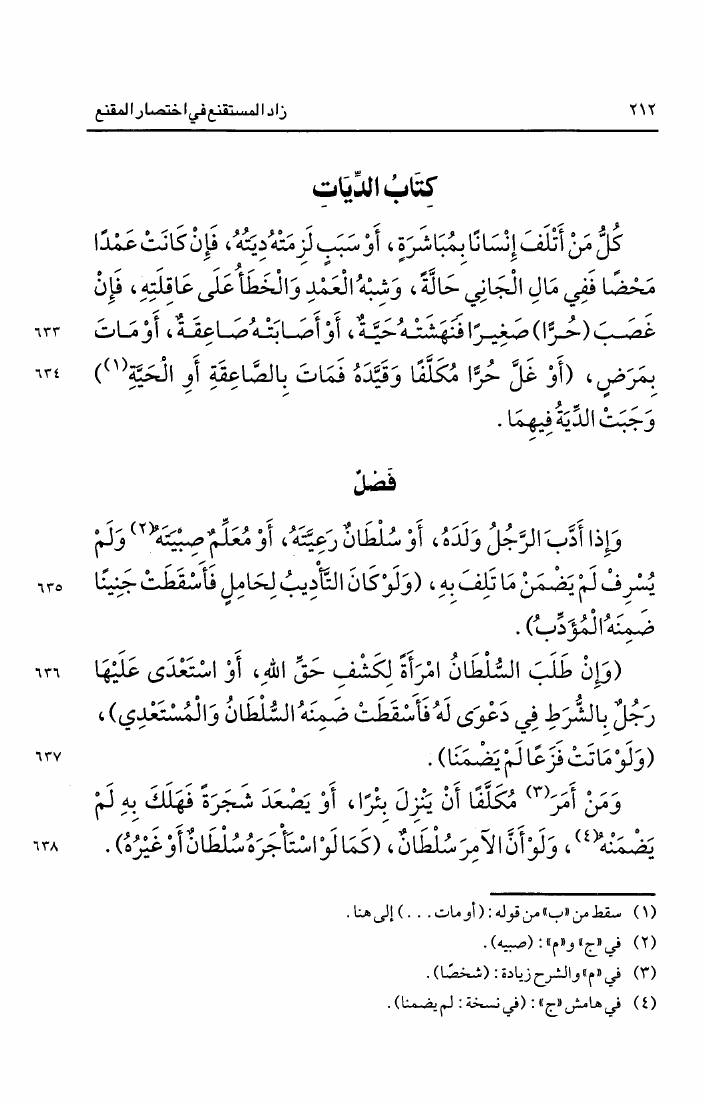 ٢١٢ زاد المستقنع في اختصار المقنع
كِتَابُ الدِّيَاتِ
كُلُّ مَنْ أَتْلَفَ إِنْسَانًا بِمُبَاشَرَةٍ، أَوْ سَبَبٍ لَزِمَتْهُ دِيَتُهُ، فَإِنْ كَانَتْ عَمْدًا
مَحْضًا فَفِي مَالِ الْجَانِي حَالَّةً، وَشِبْهُ الْعَمْدِ وَالْخَطَأُ عَلَى عَاقِلَتِهِ، فَإِنْ
غَصَبَ (حُرًّا) صَغِيرًا فَنَهَشَتْهُ حَيَّةٌ، أَوْ أَصَابَتْهُ صَاعِقَةٌ، أَوْ مَاتَ ٦٣٣
بِمَرَضٍ، (أَوْ غَلَّ حُرًّا مُكَلَّفًا وَقَيَّدَهُ فَمَاتَ بِالصَّاعِقَةِ أَوِ الْحَيَّةِ(١)) ٦٣٤
وَجَبَتْ الدِّيَةُ فِيهِمَا.
فَصْلٌ
وَإِذا أَدَّبَ الرَّجُلُ وَلَدَهُ، أَوْ سُلْطَانٌ رَعِيَّتَهُ، أَوْ مُعَلِّمٌ صِبْيَتَهُ(٢) وَلَمْ
يُسْرِفْ لَمْ يَضْمَنْ مَا تَلِفَ بِهِ، (وَلَوْ كَانَ التَّأْدِيبُ لِحَامِلٍ فَأَسْقَطَتْ جَنِينًا ٦٣٥
ضَمِنَهُ الْمُؤَدِّبُ).
(وَإِنْ طَلَبَ السُّلْطَانُ امْرَأَةً لِكَشْفِ حَقِّ اللهِ، أَوْ اسْتَعْدَى عَلَيْهَا ٦٣٦
رَجُلٌ بِالشُّرَطِ فِي دَعْوَى لَهُ فَأَسْقَطَتْ ضَمِنَهُ السُّلْطَانُ وَالْمُسْتَعْدِي)،
(وَلَوْ مَاتَتْ فَزَعًا لَمْ يَضْمَنَا). ٦٣٧
وَمَنْ أَمَرَ(٣) مُكَلَّفًا أَنْ يَنْزِلَ بِئْرًا، أَوْ يَصْعَدَ شَجَرَةً فَهَلَكَ بِهِ لَمْ
يَضْمَنْهُ(٤)، وَلَوْ أَنَّ الآمِرَ سُلْطَانٌ، (كَمَا لَوْ اسْتَأْجَرَهُ سُلْطَانٌ أَوْ غَيْرُهُ). ٦٣٨
(١) سقط من «ب» من قوله: (أو مات . . .) إلى هنا.
(٢) في «ج» و«م»: (صبيه).
(٣) في «م» والشرح زيادة: (شخصًا).
(٤) في هامش «ج»: (في نسخة: لم يضمنا).